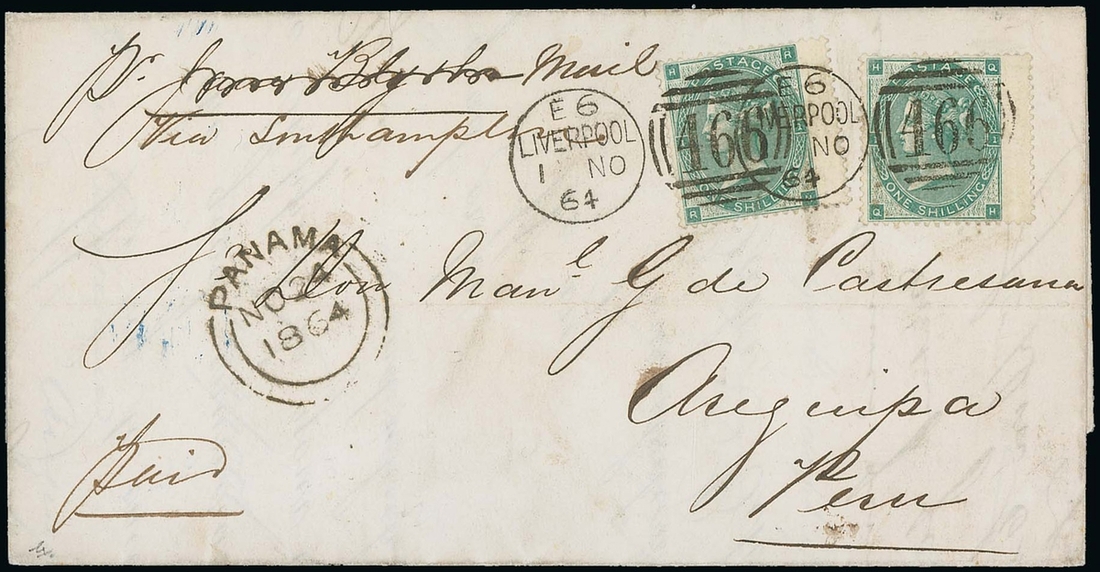 Pr Mail
Via Southampton
E6
LIVERPOOL
1 NO
64
H R
POSTAGE
466
ONE SHILLING
R H
E6
LIVERPOOL
NO
64
H Q
POSTAGE
466
ONE SHILLING
Q H
PANAMA
NO 24
1864
Don Manl G de Castresana
Arequipa
Peru
Paid